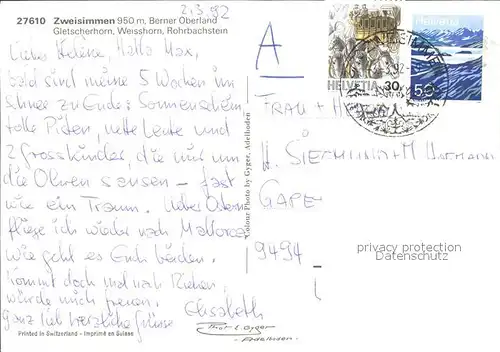 2.3.92
27610 Zweisimmen 950 m, Berner Oberland
Gletscherhorn, Weisshorn, Rohrbachstein
Liebe Helene, Hallo Max,
bald sind meine 5 Wochen im
Schnee zu Ende: Sonnenschein,
tolle Pisten, nette Leute und
2 Grosskinder, die nur um
die Ohren sausen - fast
wie ein Traum. Ueber Ostern
fliege ich wieder nach Mallorca
wie geht es Euch beiden.
Kommt doch mal nach Riehen,
würde mich freuen.
Ganz lieb herzliche Grüsse
Elisabeth
Printed in Switzerland - Imprimé en Suisse
Colour Photo by Gyger, Adelboden
A
HELVETIA 30
Helvetia
50
FRAU + H
H. SIEGMUND + M
GAPE
9494
privacy protection
Datenschutz
Thor E. Gyger
Adelboden